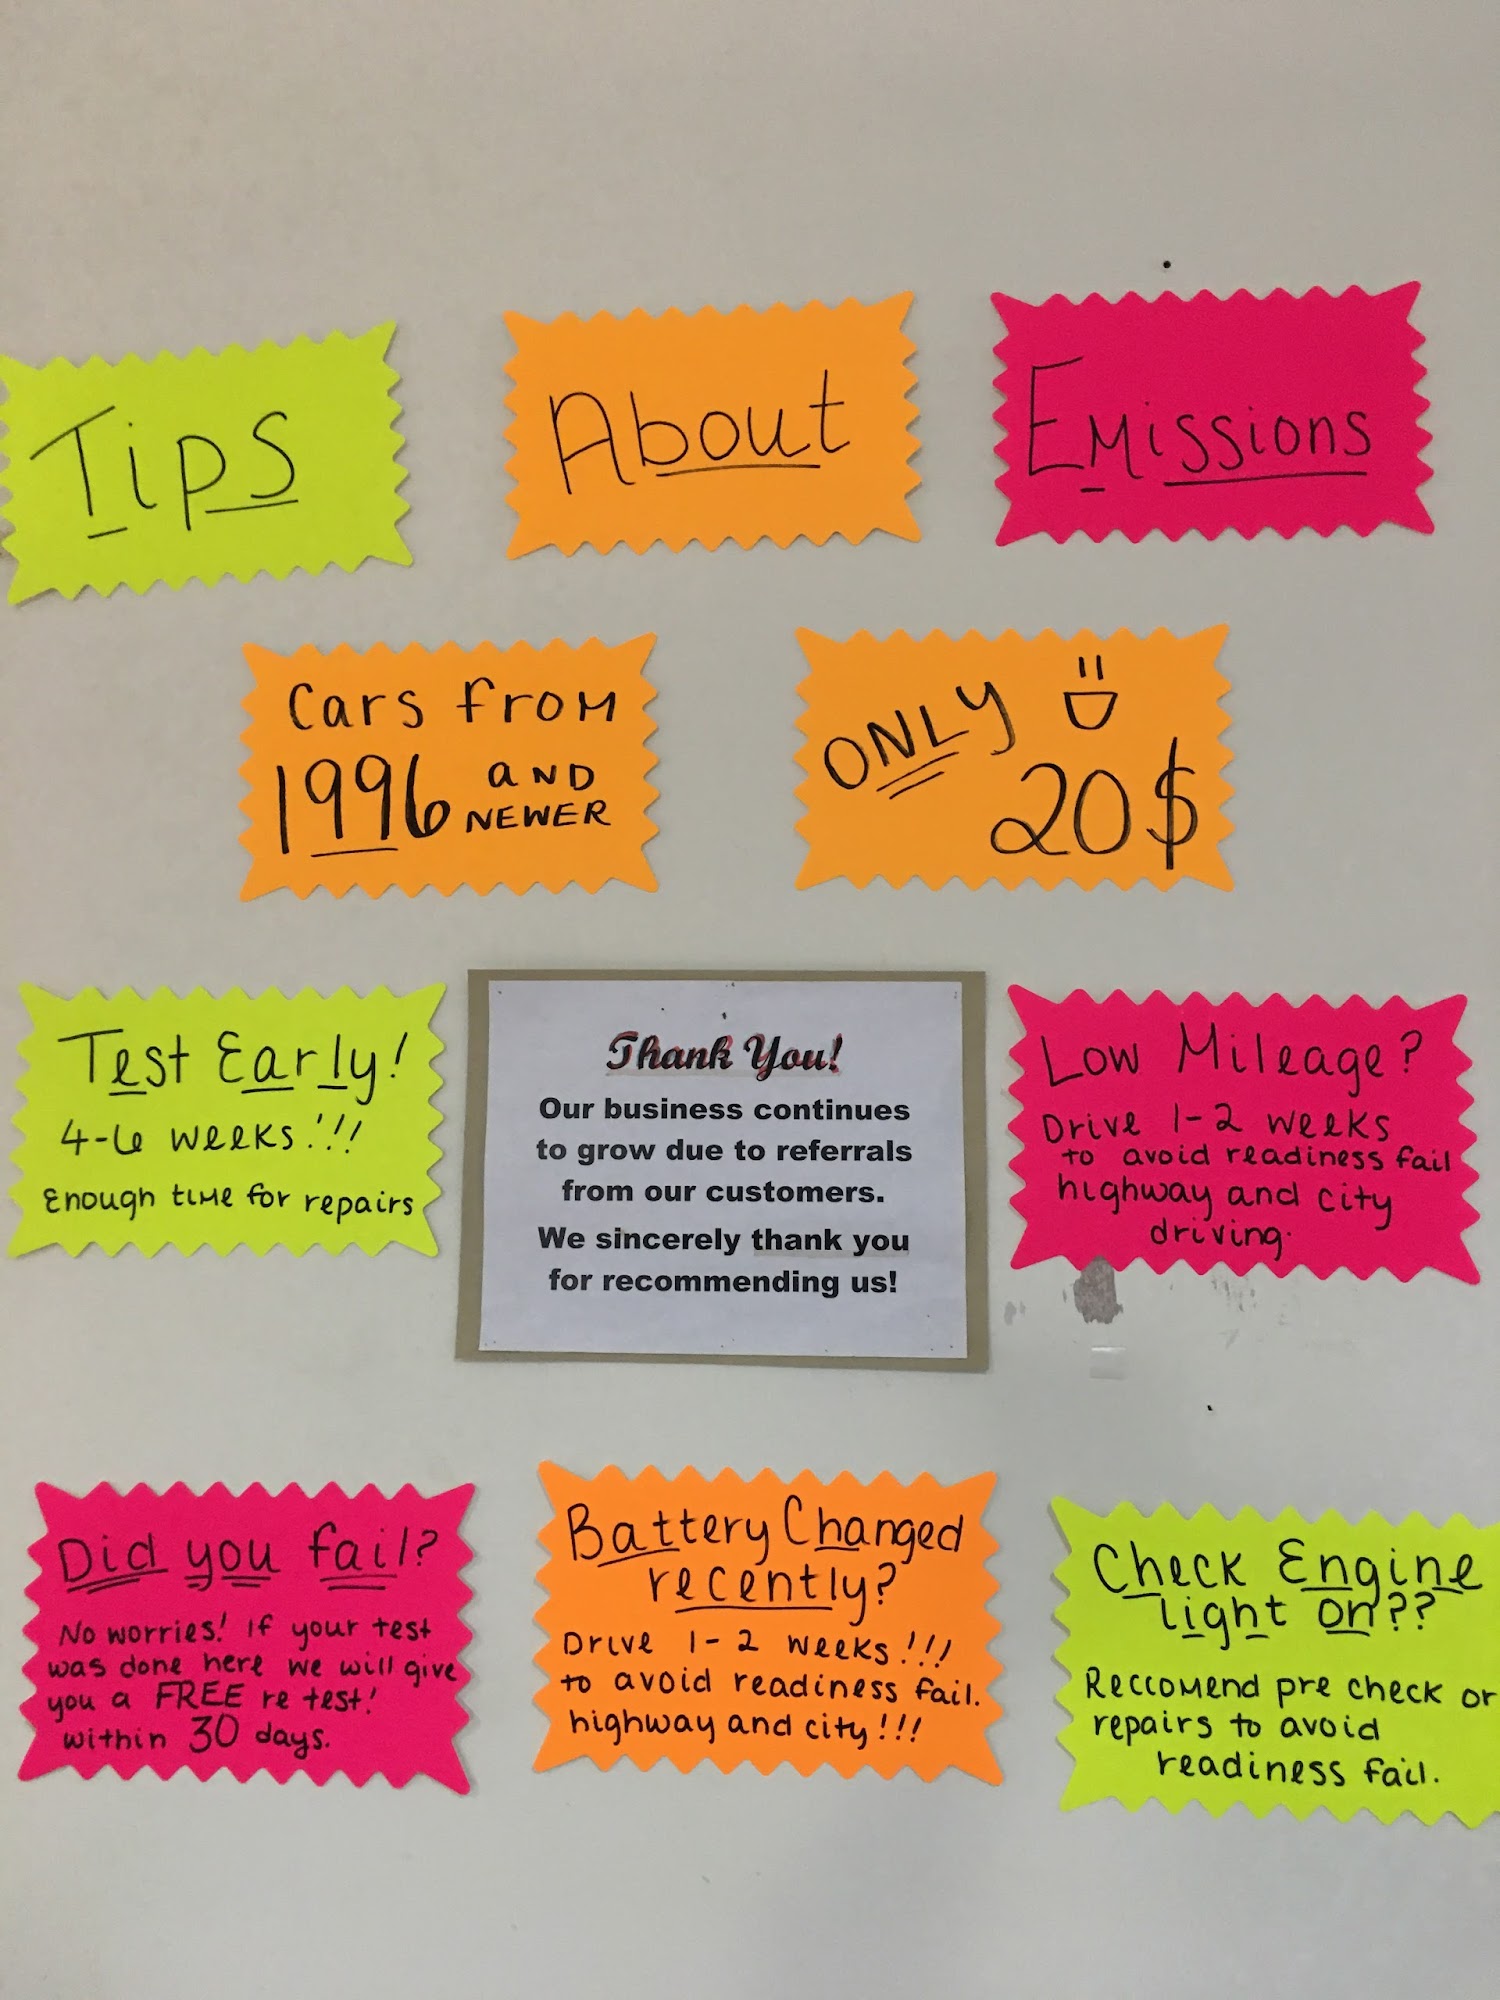 Tips
About
Emissions
Cars from
1996 and
newer
ONLY
20$
Test Early!
4-6 weeks!!!
Enough time for repairs
Thank You!
Our business continues
to grow due to referrals
from our customers.
We sincerely thank you
for recommending us!
Low Mileage?
Drive 1-2 weeks
to avoid readiness fail
highway and city
driving.
Did you fail?
No worries! If your test
was done here we will give
you a FREE re test!
within 30 days.
Battery Changed
recently?
Drive 1-2 weeks!!!
to avoid readiness fail.
highway and city!!!
Check Engine
light on??
Reccomend pre check or
repairs to avoid
readiness fail.